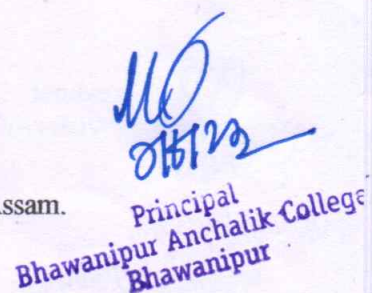 ssam.
Principal
Bhawanipur Anchalik College
Bhawanipur